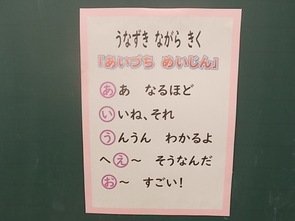 うなずき ながら きく
『あいづち めいじん』
ああ なるほど
いいね、それ
うんうん わかるよ
へえ～ そうなんだ
お～ すごい！